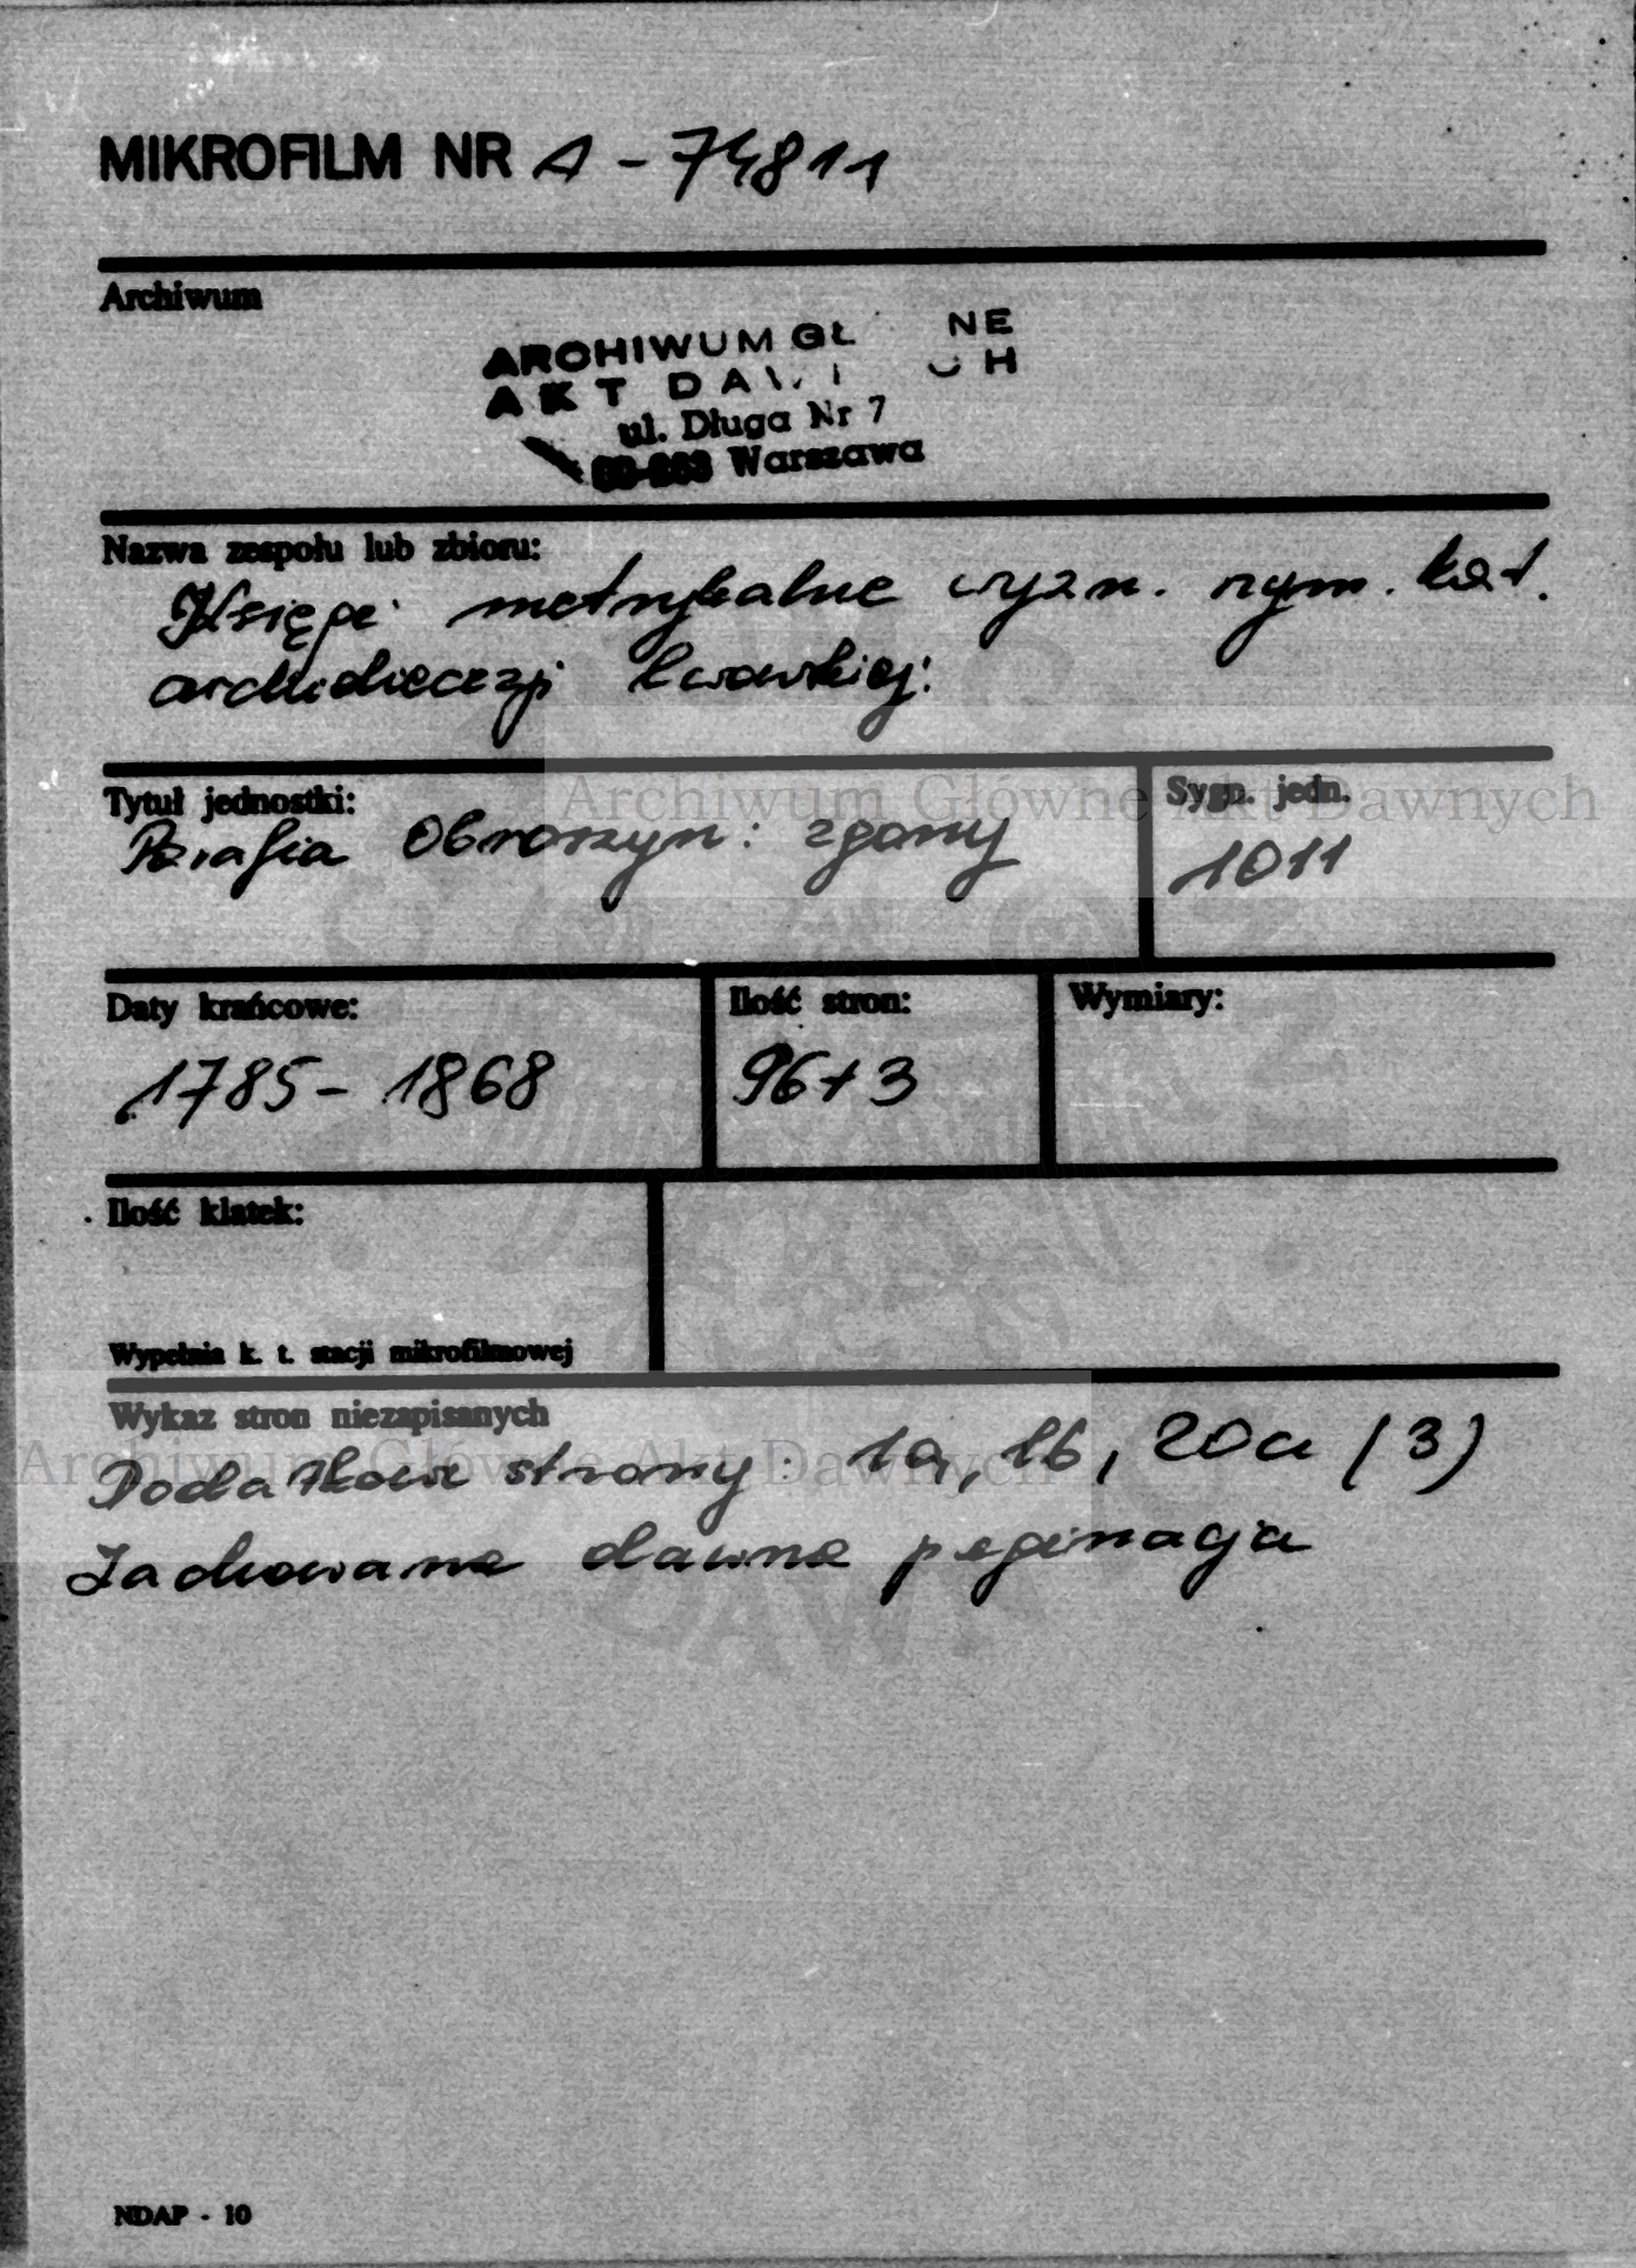 MIKROFILM NR A - 74811
Archiwum
ARCHIWUM GŁ NE
AKT DAW CH
ul. Długa Nr 7
00-263 Warszawa
Nazwa zespołu lub zbioru:
Księgi metrykalne wyzn. rzym. kat.
archidiecezji lwowskiej:
Tytuł jednostki:
Parafia Obroszyn: zgony
Sygn. jedn.
1011
Archiwum Główne Akt Dawnych
Daty krańcowe:
1785 - 1868
Ilość stron:
96+3
Wymiary:
Ilość klatek:
Wypełnia k. t. stacji mikrofilmowej
Wykaz stron niezapisanych
Archiwum Główne Akt Dawnych
Dodatkowe strony: 1a, 1b, 20a (3)
Zachowana dawna paginacja
DAW
NDAP - 10